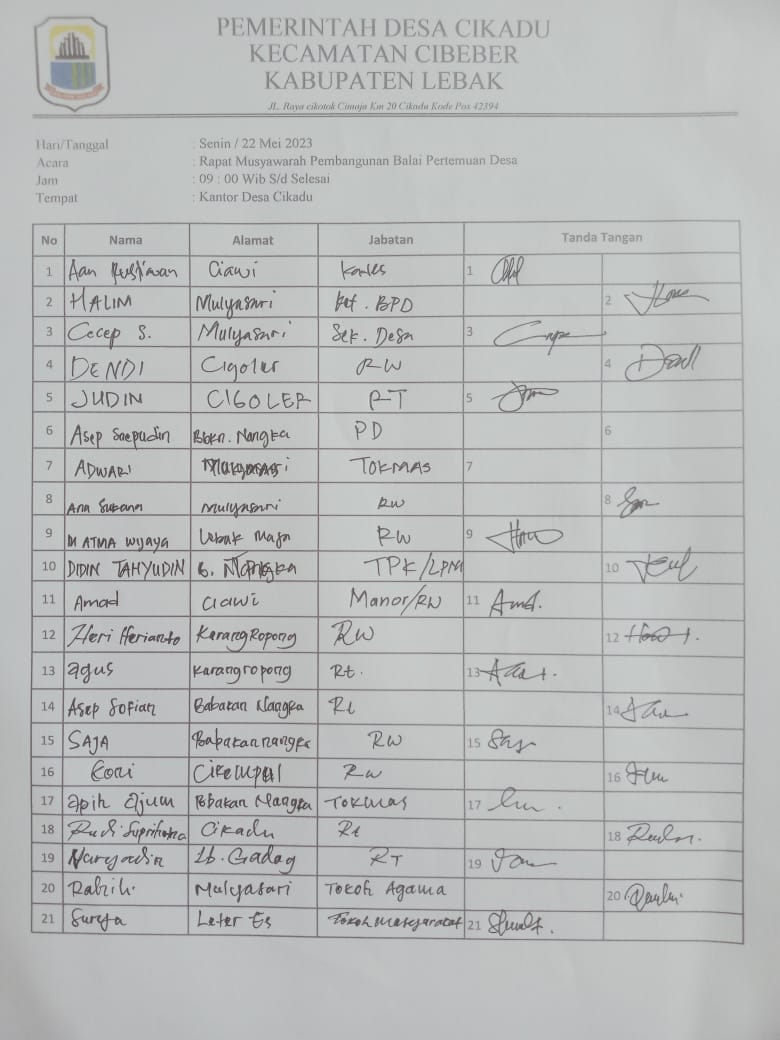 PEMERINTAH DESA CIKADU
KECAMATAN CIBEBER
KABUPATEN LEBAK
JL. Raya cikotok Cimaja Km 20 Cikadu Kode Pos 42394
Hari/Tanggal : Senin / 22 Mei 2023
Acara : Rapat Musyawarah Pembangunan Balai Pertemuan Desa
Jam : 09 : 00 Wib S/d Selesai
Tempat : Kantor Desa Cikadu
No Nama Alamat Jabatan Tanda Tangan
1 Aan Ciawi 1
2 HALIM Mulyasari Ket. BPD 2
3 Cecep S. Mulyasari Sek. Desa 3
4 DENDI Cigoler RW 4
5 JUDIN CIGOLER RT 5
6 Asep Saepudin Bbkn. Nangka PD 6
7 ADWARI TOKMAS 7
8 Ana Mulyasari RW 8
9 M ATMA WIJAYA Lebak RW 9
10 DIDIN TAHYUDIN B. Nangka TPK/LPM 10
11 Amad Ciawi Manor/RW 11 Amd.
12 Heri Herianto Karang Ropong RW 12
13 agus Karangropong Rt. 13
14 Asep Sofian Babakan Nangka Rt 14
15 SAJA Babakan nangka RW 15
16 RW 16
17 apih ajum Babakan Nangka Tokmas 17
18 Rudi Cikadu Rt 18
19 Lb. Gadog RT 19
20 Mulyasari Tokoh Agama 20
21 Surya Leter Es Tokoh Masyarakat 21